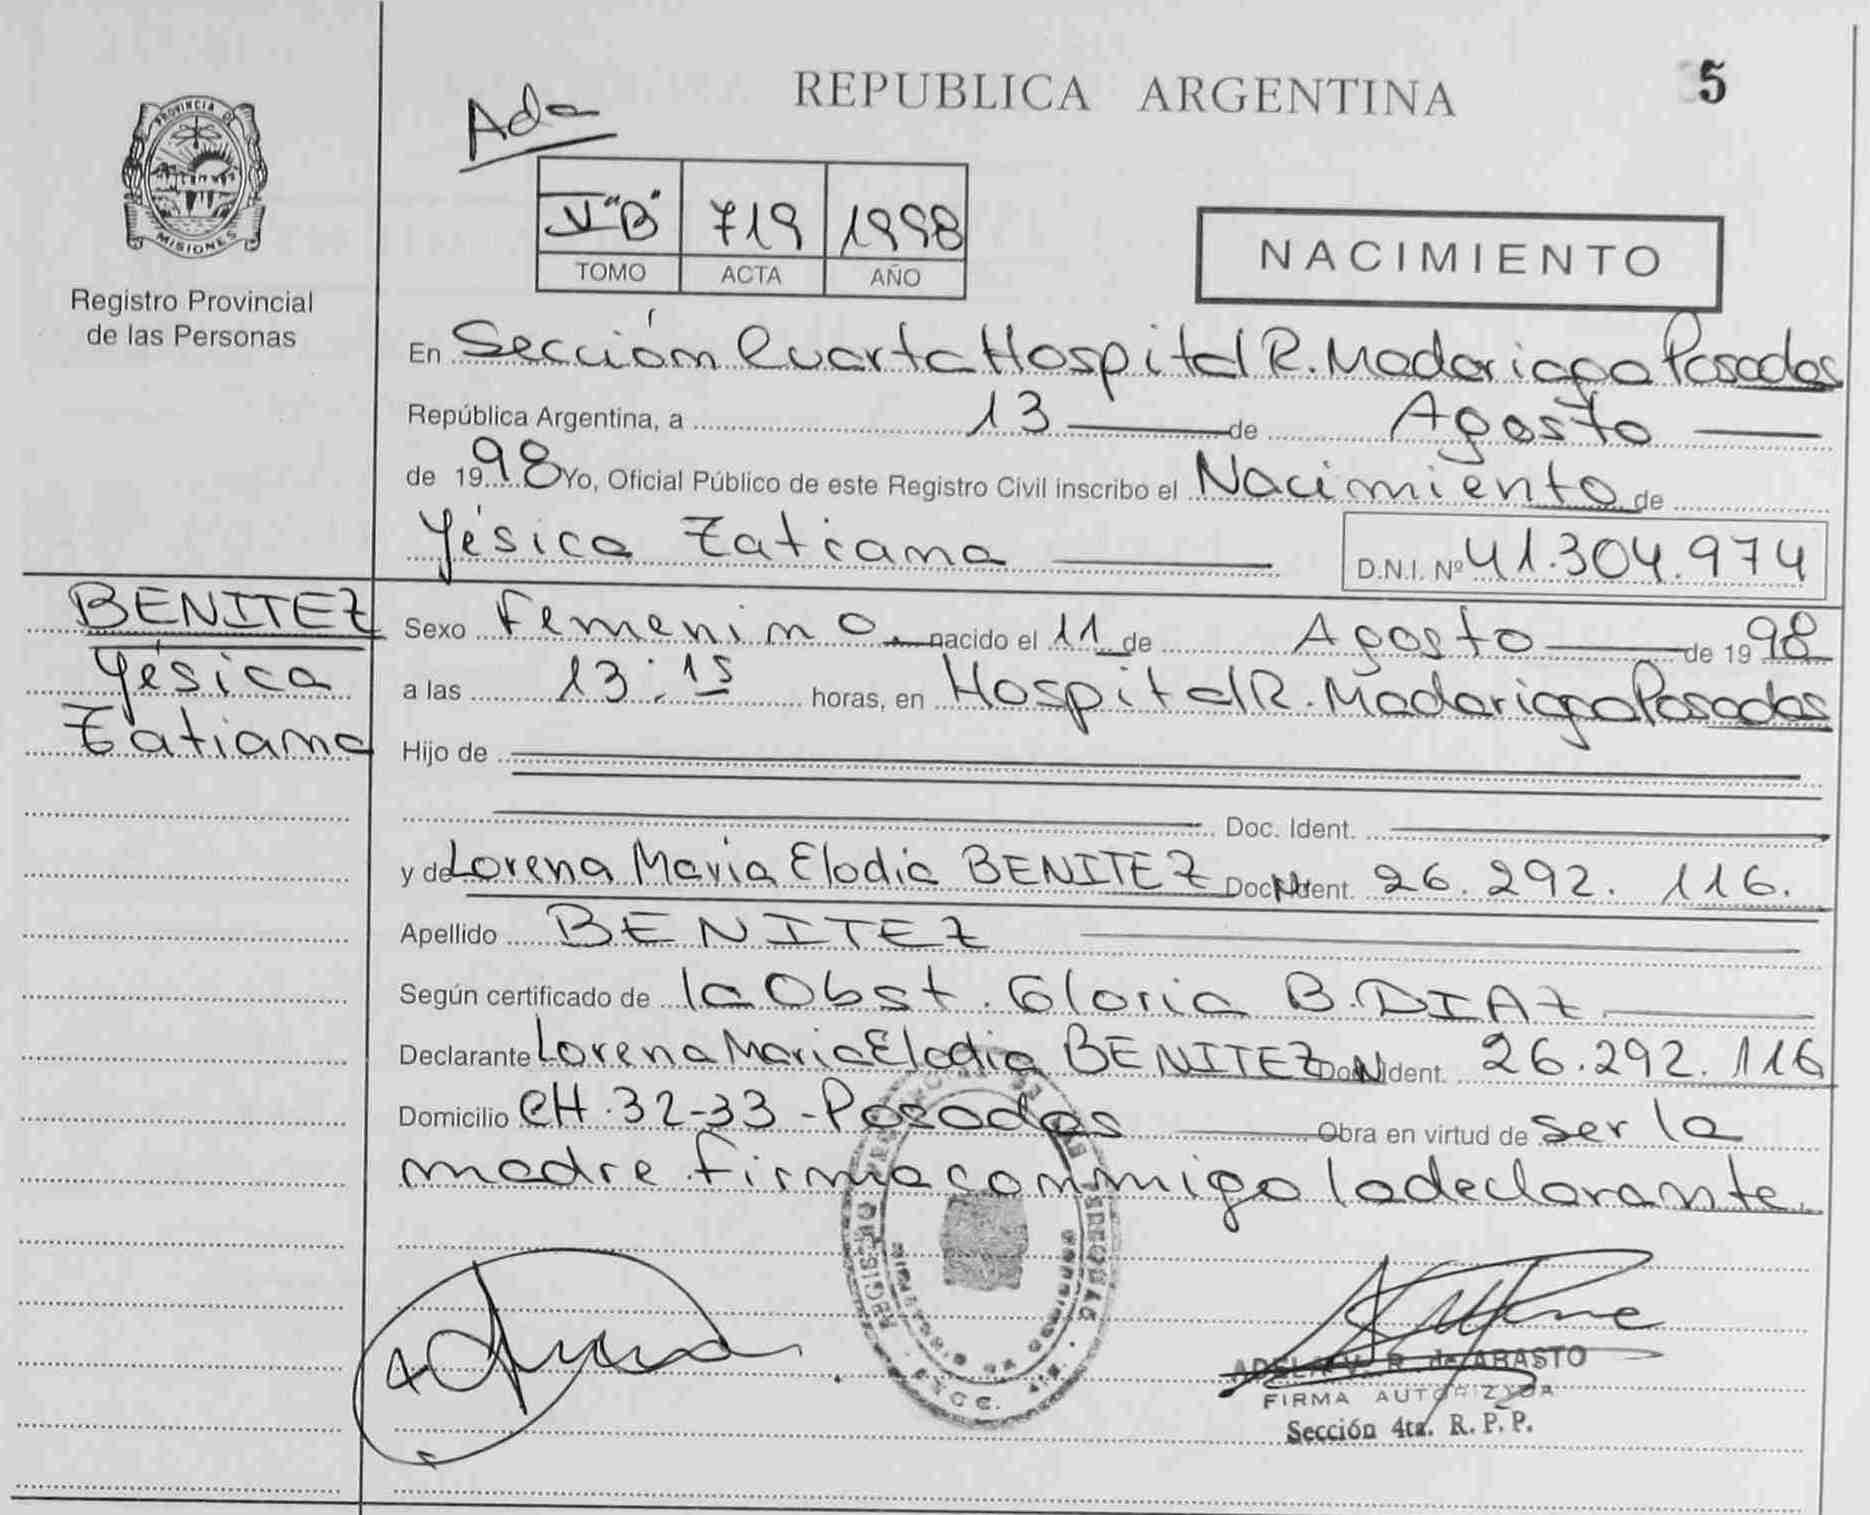 REPUBLICA ARGENTINA
5
PROVINCIA DE
MISIONES
Registro Provincial
de las Personas
Ada
V "B" 719 1998
TOMO ACTA AÑO
NACIMIENTO
En Sección Cuarta Hospital R. Madariaga Posadas
República Argentina, a 13 de Agosto
de 1998 Yo, Oficial Público de este Registro Civil inscribo el Nacimiento de
Yésica Tatiana
D.N.I. Nº 41.304.974
BENITEZ
Yésica
Tatiana
Sexo Femenino. nacido el 11 de Agosto de 1998
a las 13:15 horas, en Hospital R. Madariaga Posadas
Hijo de
Doc. Ident.
y de Lorena Maria Elodia BENITEZ Doc. Ident. 26.292.116.
Apellido BENITEZ
Según certificado de la Obst. Gloria B. DIAZ
Declarante Lorena Maria Elodia BENITEZ Doc. Ident. 26.292.116
Domicilio CH. 32-33 - Posadas Obra en virtud de ser la
madre. firma conmigo la declarante.
REGISTRO
ADELA V. R. de ABASTO
FIRMA AUTORIZADA
Sección 4ta. R. P. P.